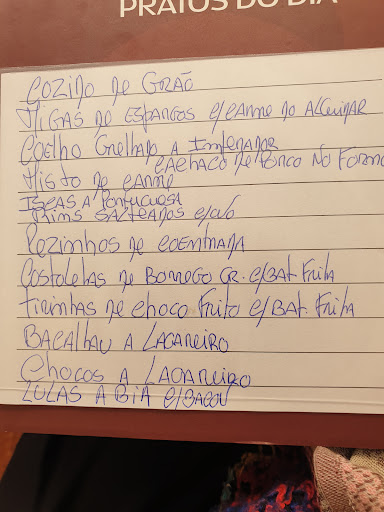 PRATOS DO DIA
COZIDO DE GRÃO
MIGAS DE ESPARGOS C/CARNE DO ALGUIDAR
COELHO GRELHADO A
CACHAÇO DE PORCO NO FORNO
MISTO DE CARNE
ISCAS A PORTUGUESA
RINS SALTEADOS
PEZINHOS DE COENTRADA
COSTOLETAS DE BORREGO GR. C/BAT. FRITA
TIRINHAS DE CHOCO FRITO C/BAT. FRITA
BACALHAU A LAGAREIRO
CHOCOS A LAGAREIRO
LULAS A C/BACON